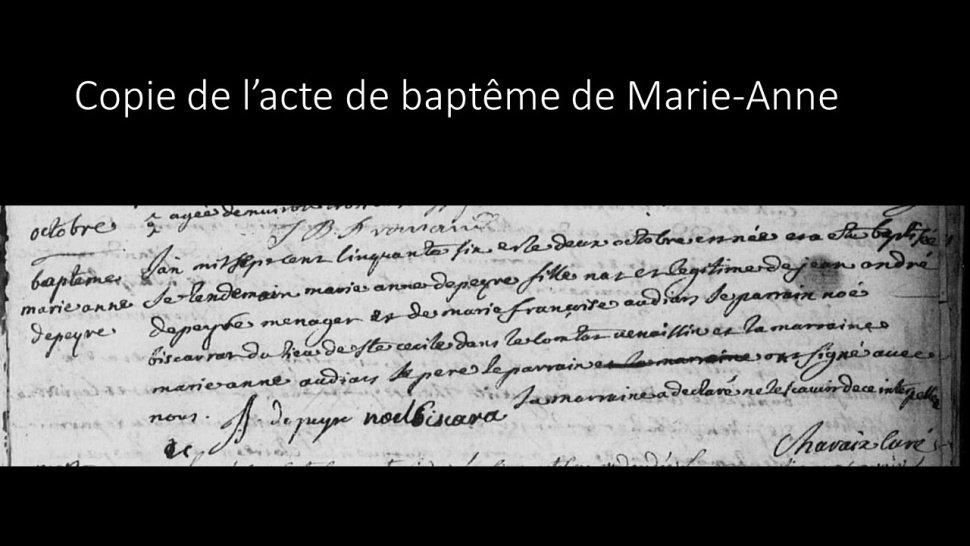 Copie de l’acte de baptême de Marie-Anne
octobre
baptême
marie anne
depeyre
agée de
J B
L'an mil sept cent cinquante six et le deux octobre est née et a eté baptisée
le lendemain marie anne depeyre fille nat et legitime de jean andré
depeyre menager et de marie françoise audiars le parrain noé
biscarrat du lieu de ste cecile dans le comtat venaissin et la marraine
marie anne audiars le pere le parrain et la marraine ont signé avec
nous. la marraine a declaré ne le scavoir de ce interpellée
depeyre noel biscara
Chavaix curé